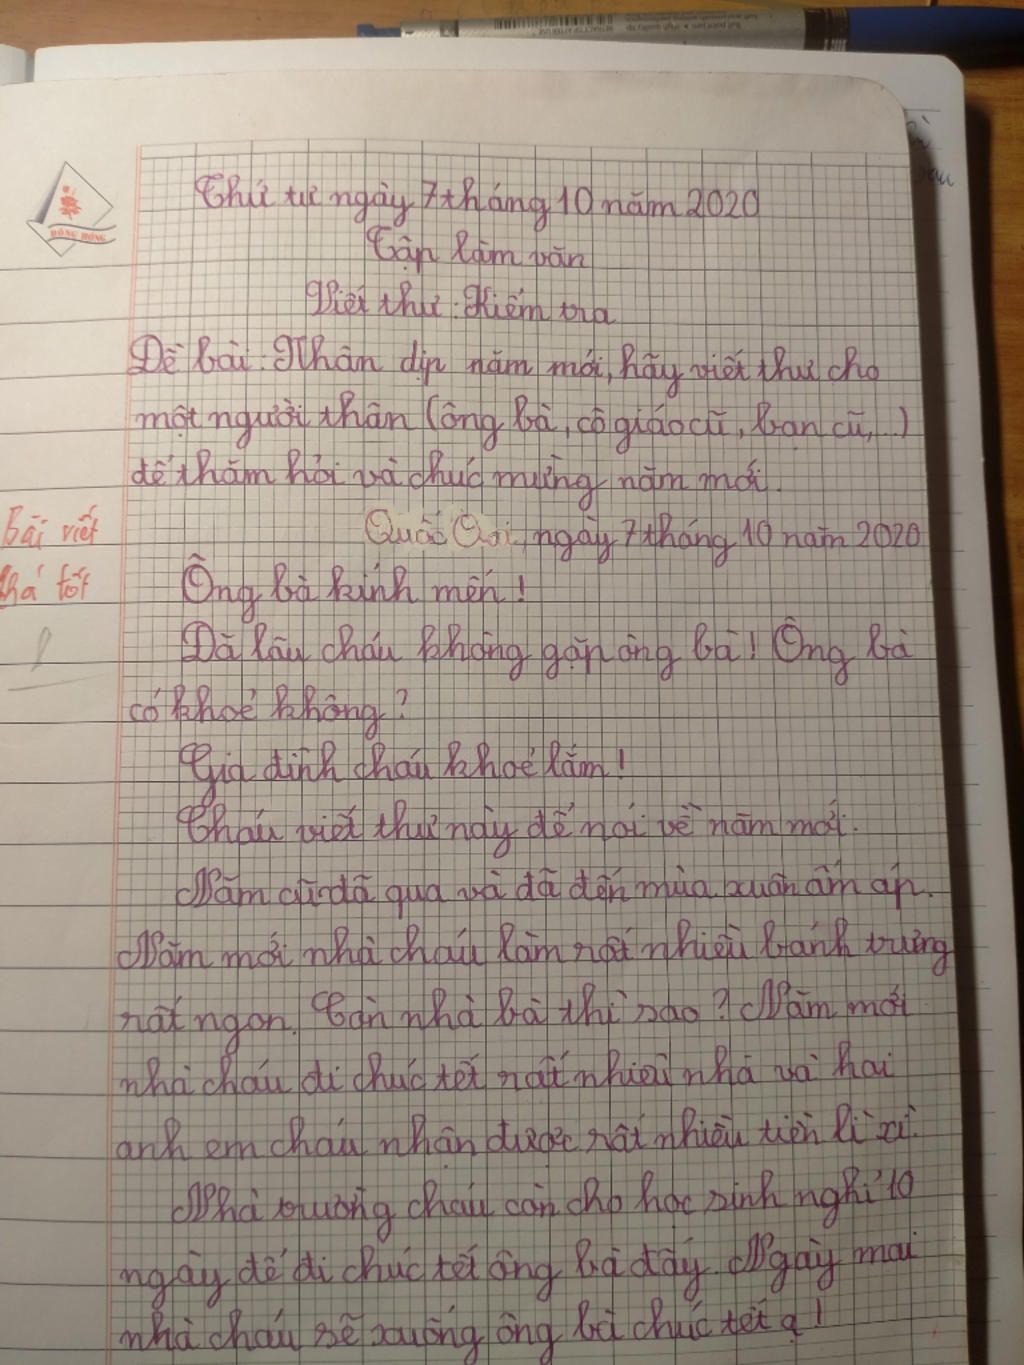 Thứ tư ngày 7 tháng 10 năm 2020
Tập làm văn
Viết thư: Kiểm tra
Đề bài: Nhân dịp năm mới, hãy viết thư cho
một người thân (ông bà, cô giáo cũ, bạn cũ,...)
để thăm hỏi và chúc mừng năm mới.
Quốc Oai, ngày 7 tháng 10 năm 2020
Ông bà kính mến!
Đã lâu cháu không gặp ông bà! Ông bà
có khoẻ không?
Gia đình cháu khoẻ lắm!
Cháu viết thư này để nói về năm mới.
Năm cũ đã qua và đã đến mùa xuân ấm áp.
Năm mới nhà cháu làm rất nhiều bánh trưng
rất ngon. Còn nhà bà thì sao? Năm mới
nhà cháu đi chúc tết rất nhiều nhà và hai
anh em cháu nhận được rất nhiều tiền lì xì.
Nhà trường cháu còn cho học sinh nghỉ 10
ngày để đi chúc tết ông bà đấy. Ngày mai
nhà cháu sẽ xuống ông bà chúc tết ạ!
Bài viết
khá tốt
HỒNG HÒNG